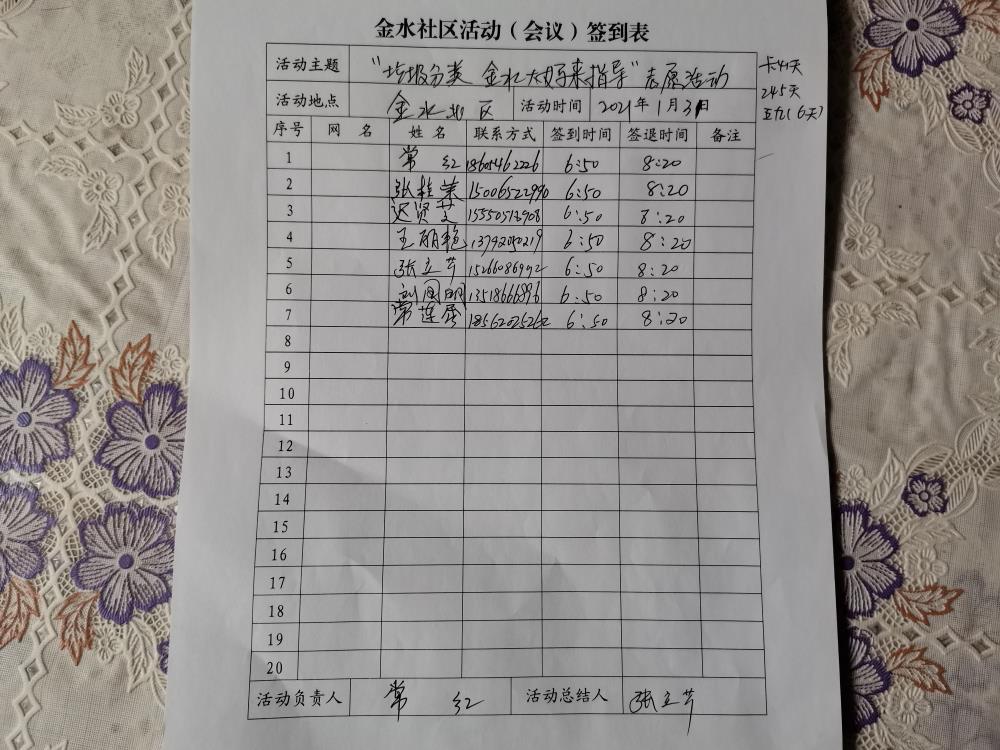 金水社区活动（会议）签到表
活动主题 “垃圾分类 金水大妈来指导”志愿活动
活动地点 金水社区 活动时间 2021年1月31日
245天
序号 网 名 姓 名 联系方式 签到时间 签退时间 备注
1 常 红 6:50 8:20
2 张桂荣 15006522990 6:50 8:20
3 迟贤芝 6:50 8:20
4 王丽艳 6:50 8:20
5 张立芹 6:50 8:20
6 刘国明 6:50 8:20
7 常莲 6:50 8:20
8
9
10
11
12
13
14
15
16
17
18
19
20
活动负责人 常 红 活动总结人 张立芹